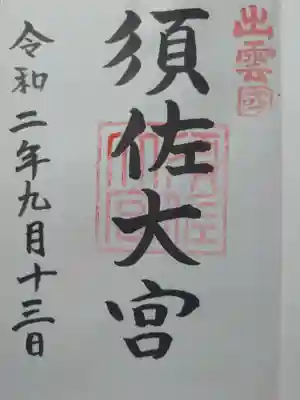 出雲國
須佐大宮
令和二年九月十三日